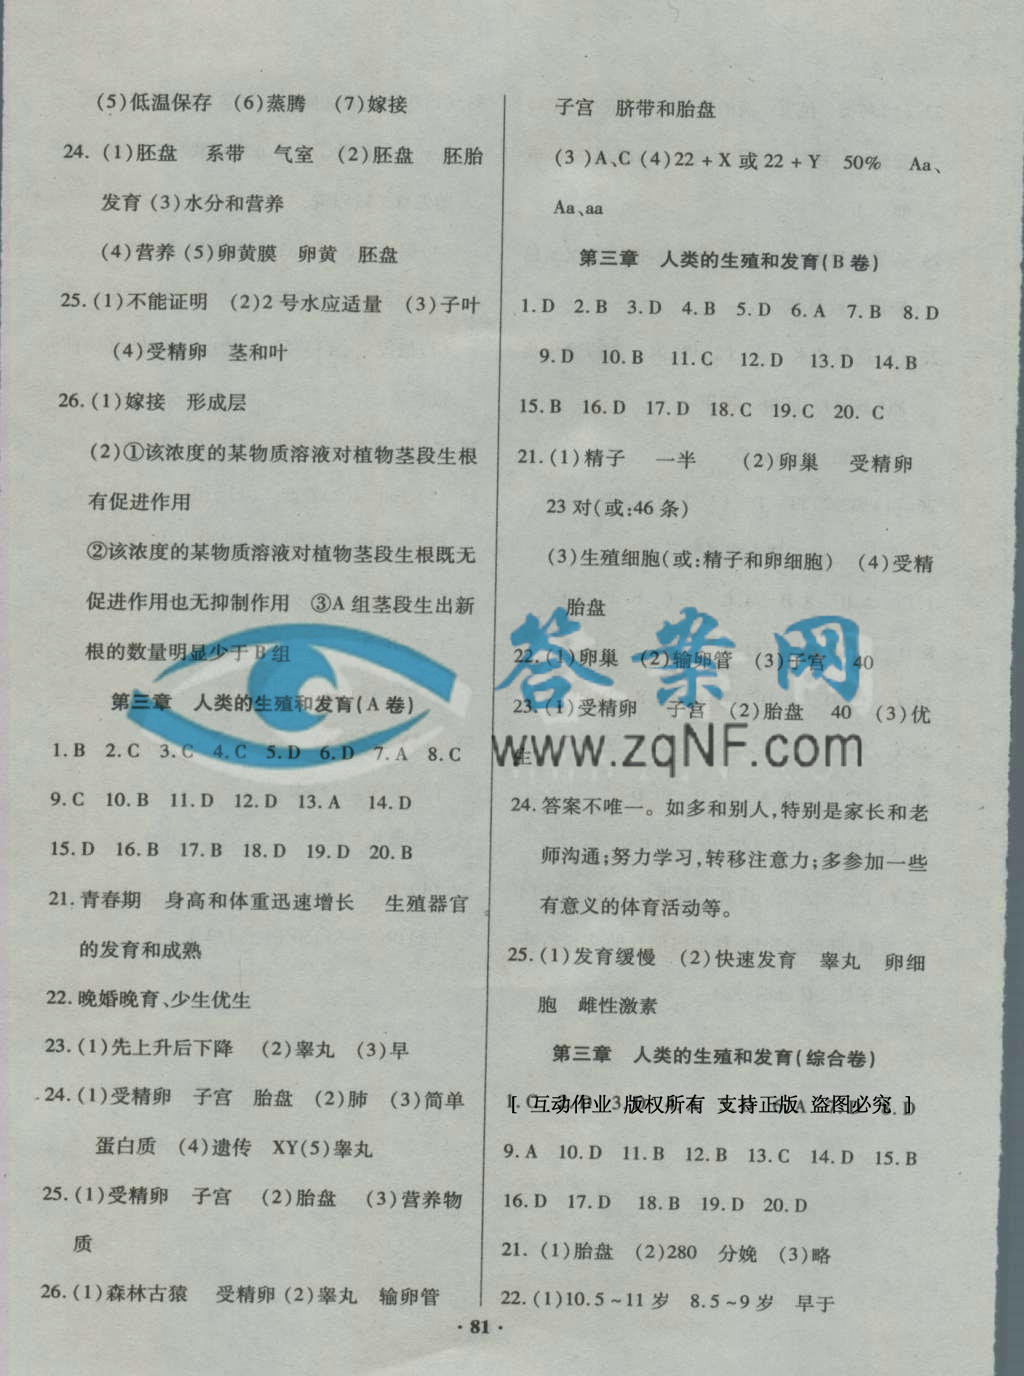 (5)低温保存 (6)蒸腾 (7)嫁接
24. (1)胚盘 系带 气室 (2)胚盘 胚胎
发育 (3)水分和营养
(4)营养 (5)卵黄膜 卵黄 胚盘
25. (1)不能证明 (2)2 号水应适量 (3)子叶
(4)受精卵 茎和叶
26. (1)嫁接 形成层
(2)①该浓度的某物质溶液对植物茎段生根
有促进作用
②该浓度的某物质溶液对植物茎段生根既无
促进作用也无抑制作用 ③A 组茎段生出新
根的数量明显少于 B 组
第三章 人类的生殖和发育(A 卷)
1. B 2. C 3. C 4. C 5. D 6. D 7. A 8. C
9. C 10. B 11. D 12. D 13. A 14. D
15. D 16. B 17. B 18. D 19. D 20. B
21. 青春期 身高和体重迅速增长 生殖器官
的发育和成熟
22. 晚婚晚育、少生优生
23. (1)先上升后下降 (2)睾丸 (3)早
24. (1)受精卵 子宫 胎盘 (2)肺 (3)简单
蛋白质 (4)遗传 XY(5)睾丸
25. (1)受精卵 子宫 (2)胎盘 (3)营养物
质
26. (1)森林古猿 受精卵 (2)睾丸 输卵管
子宫 脐带和胎盘
(3)A、C (4)22 + X 或 22 + Y 50% Aa、
Aa、aa
第三章 人类的生殖和发育(B 卷)
1. D 2. B 3. D 4. B 5. D 6. A 7. B 8. D
9. D 10. B 11. C 12. D 13. D 14. B
15. B 16. D 17. D 18. C 19. C 20. C
21. (1)精子 一半 (2)卵巢 受精卵
23 对(或:46 条)
(3)生殖细胞(或:精子和卵细胞) (4)受精
胎盘
22. (1)卵巢 (2)输卵管 (3)子宫 40
23. (1)受精卵 子宫 (2)胎盘 40 (3)优
生
24. 答案不唯一。如多和别人,特别是家长和老
师沟通;努力学习,转移注意力;多参加一些
有意义的体育活动等。
25. (1)发育缓慢 (2)快速发育 睾丸 卵细
胞 雌性激素
第三章 人类的生殖和发育(综合卷)
[ 互动作业 版权所有 支持正版 盗图必究 ]
9. A 10. D 11. B 12. B 13. C 14. D 15. B
16. D 17. D 18. B 19. D 20. D
21. (1)胎盘 (2)280 分娩 (3)略
22. (1)10.5~11 岁 8.5~9 岁 早于
· 81 ·
答案网
www.zqNF.com